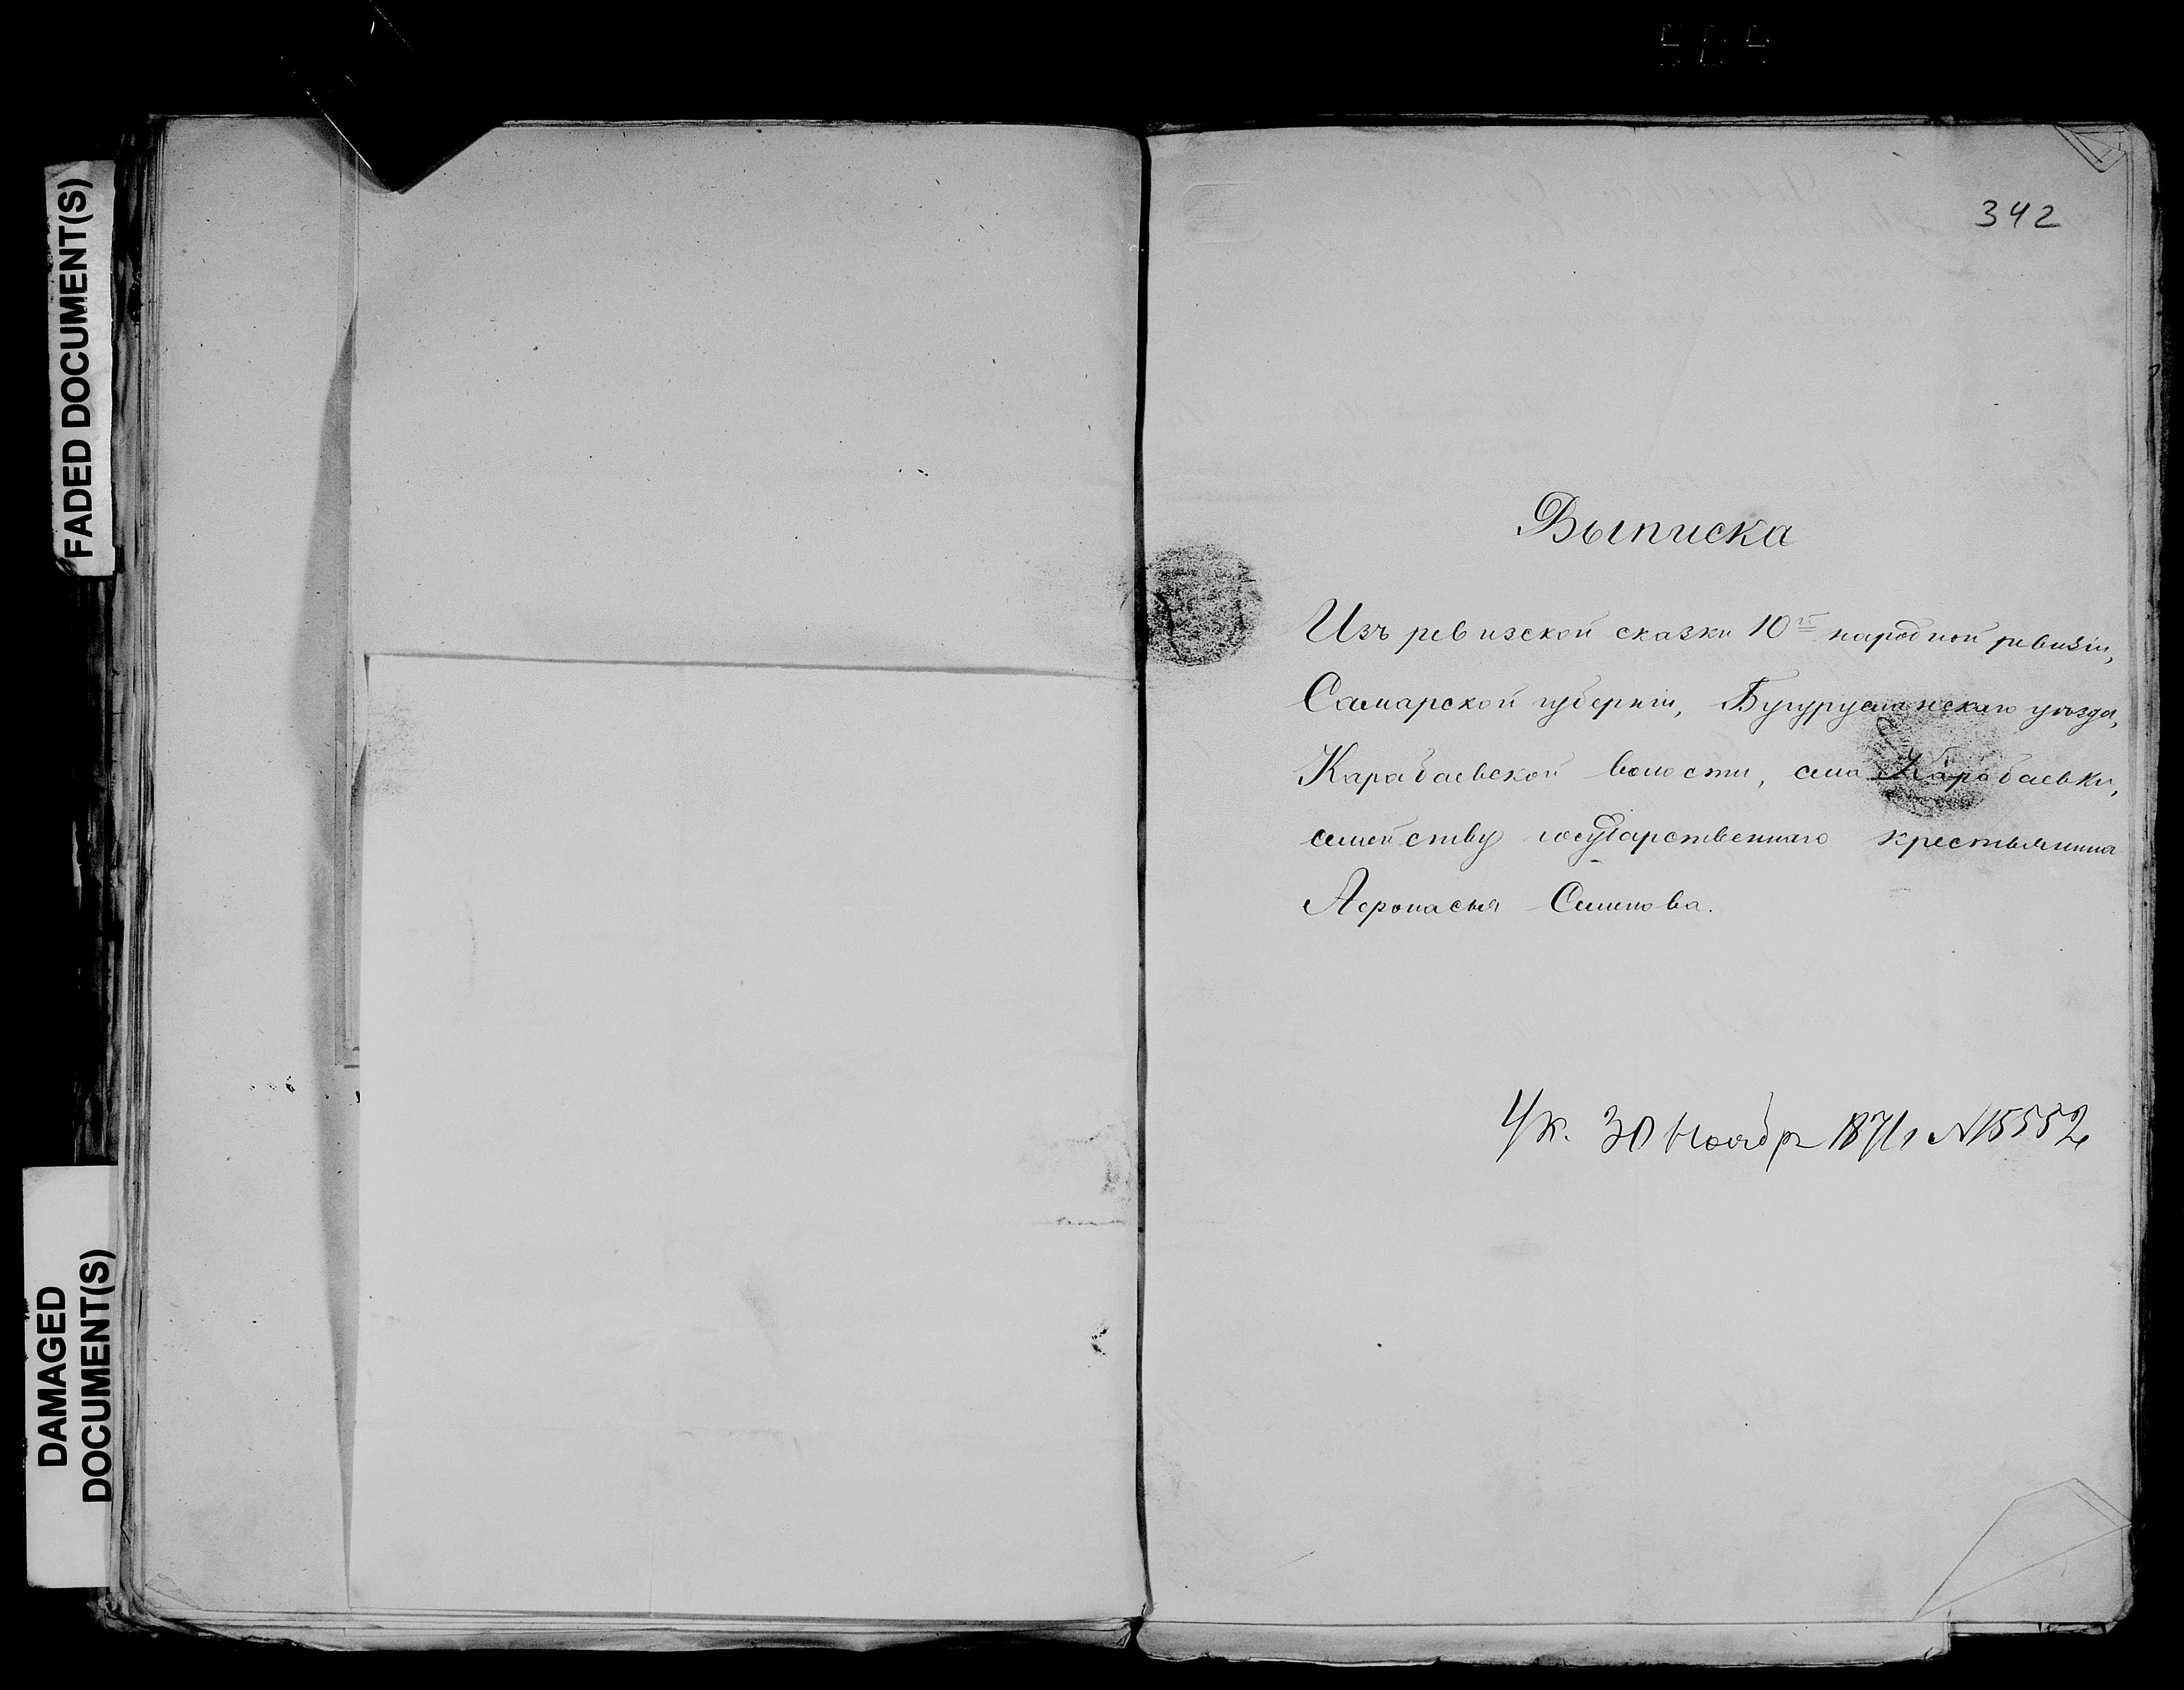 FADED DOCUMENT(S)
DAMAGED
DOCUMENT(S)
342
Выписка
Изъ ревизской сказки 10й народной ревизіи,
Самарской губерніи, Бугурусланскаго уѣзда,
Карабаевской волости, села Карабаевки,
семейству государственнаго крестьянина
Афонасья
Ук. 30 Ноябр 1871 N 15552